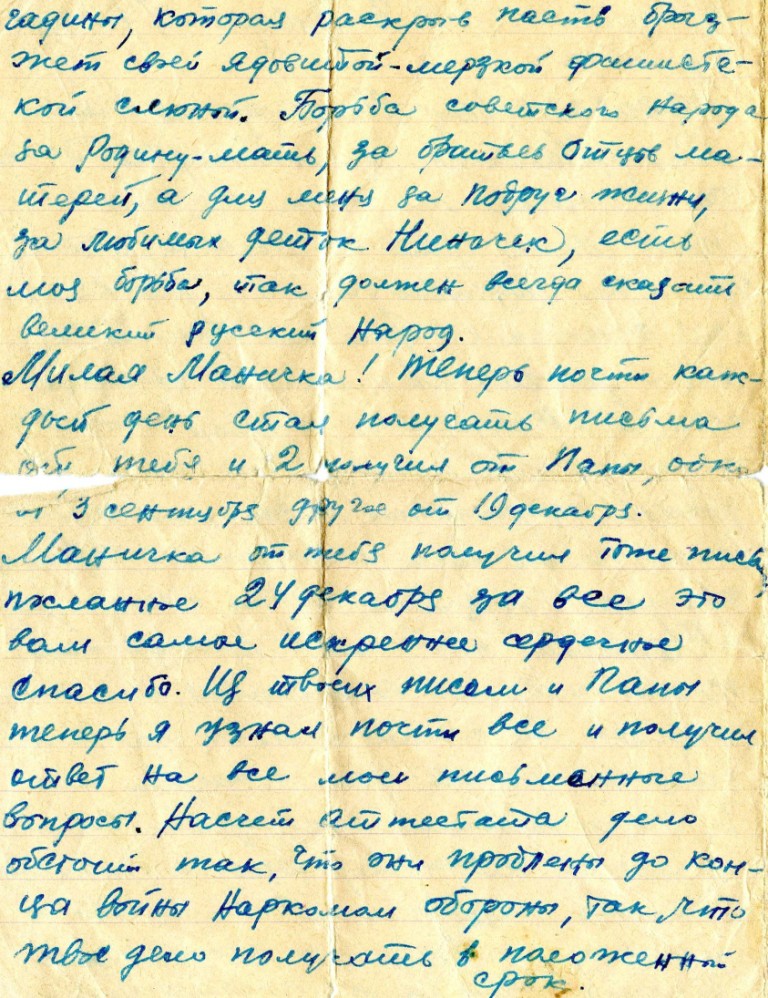 гадины, которая раскрыв пасть брыз-
жет своей ядовитой-мерзкой фашистс-
кой слюной. Борьба советского народа
за Родину-мать, за братьев отцов ма-
терей, а для меня за подруг жизни,
за любимых деток Ниночек, есть
моя борьба, так должен всегда сказать
великий русский народ.
Милая Маничка! Теперь почти каж-
дый день стал получать письма
от тебя и 2 получил от Папы, одно
от 3 сентября другое от 19 декабря.
Маничка от тебя получил тоже письмо
посланное 24 декабря за все это
вам самое искренне сердечное
спасибо. Из твоих писем и Папы
теперь я узнал почти все и получил
ответ на все мои письменные
вопросы. Насчет аттестата дело
обстоит так, что они продлены до кон-
ца войны Наркомом обороны, так, что
твое дело получать в положенный
срок.